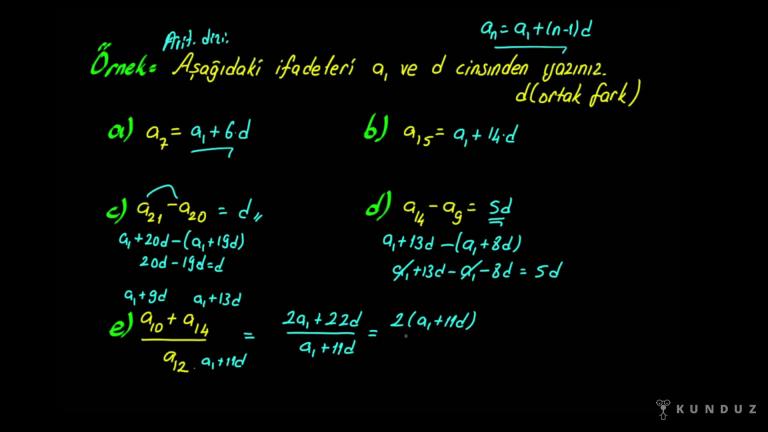 Arit. dizi
aₙ = a₁ + (n-1)d
Örnek= Aşağıdaki ifadeleri a₁ ve d cinsinden yazınız.
d(ortak fark)
a) a₇ = a₁ + 6.d
b) a₁₅ = a₁ + 14.d
c) a₂₁ - a₂₀ = d,,
a₁ + 20d - (a₁ + 19d)
20d - 19d = d
d) a₁₄ - a₉ = 5d
a₁ + 13d - (a₁ + 8d)
a₁ + 13d - a₁ - 8d = 5d
a₁ + 9d a₁ + 13d
e) a₁₀ + a₁₄ = 2a₁ + 22d = 2(a₁ + 11d)
a₁₂ . a₁ + 11d a₁ + 11d
KUNDUZ